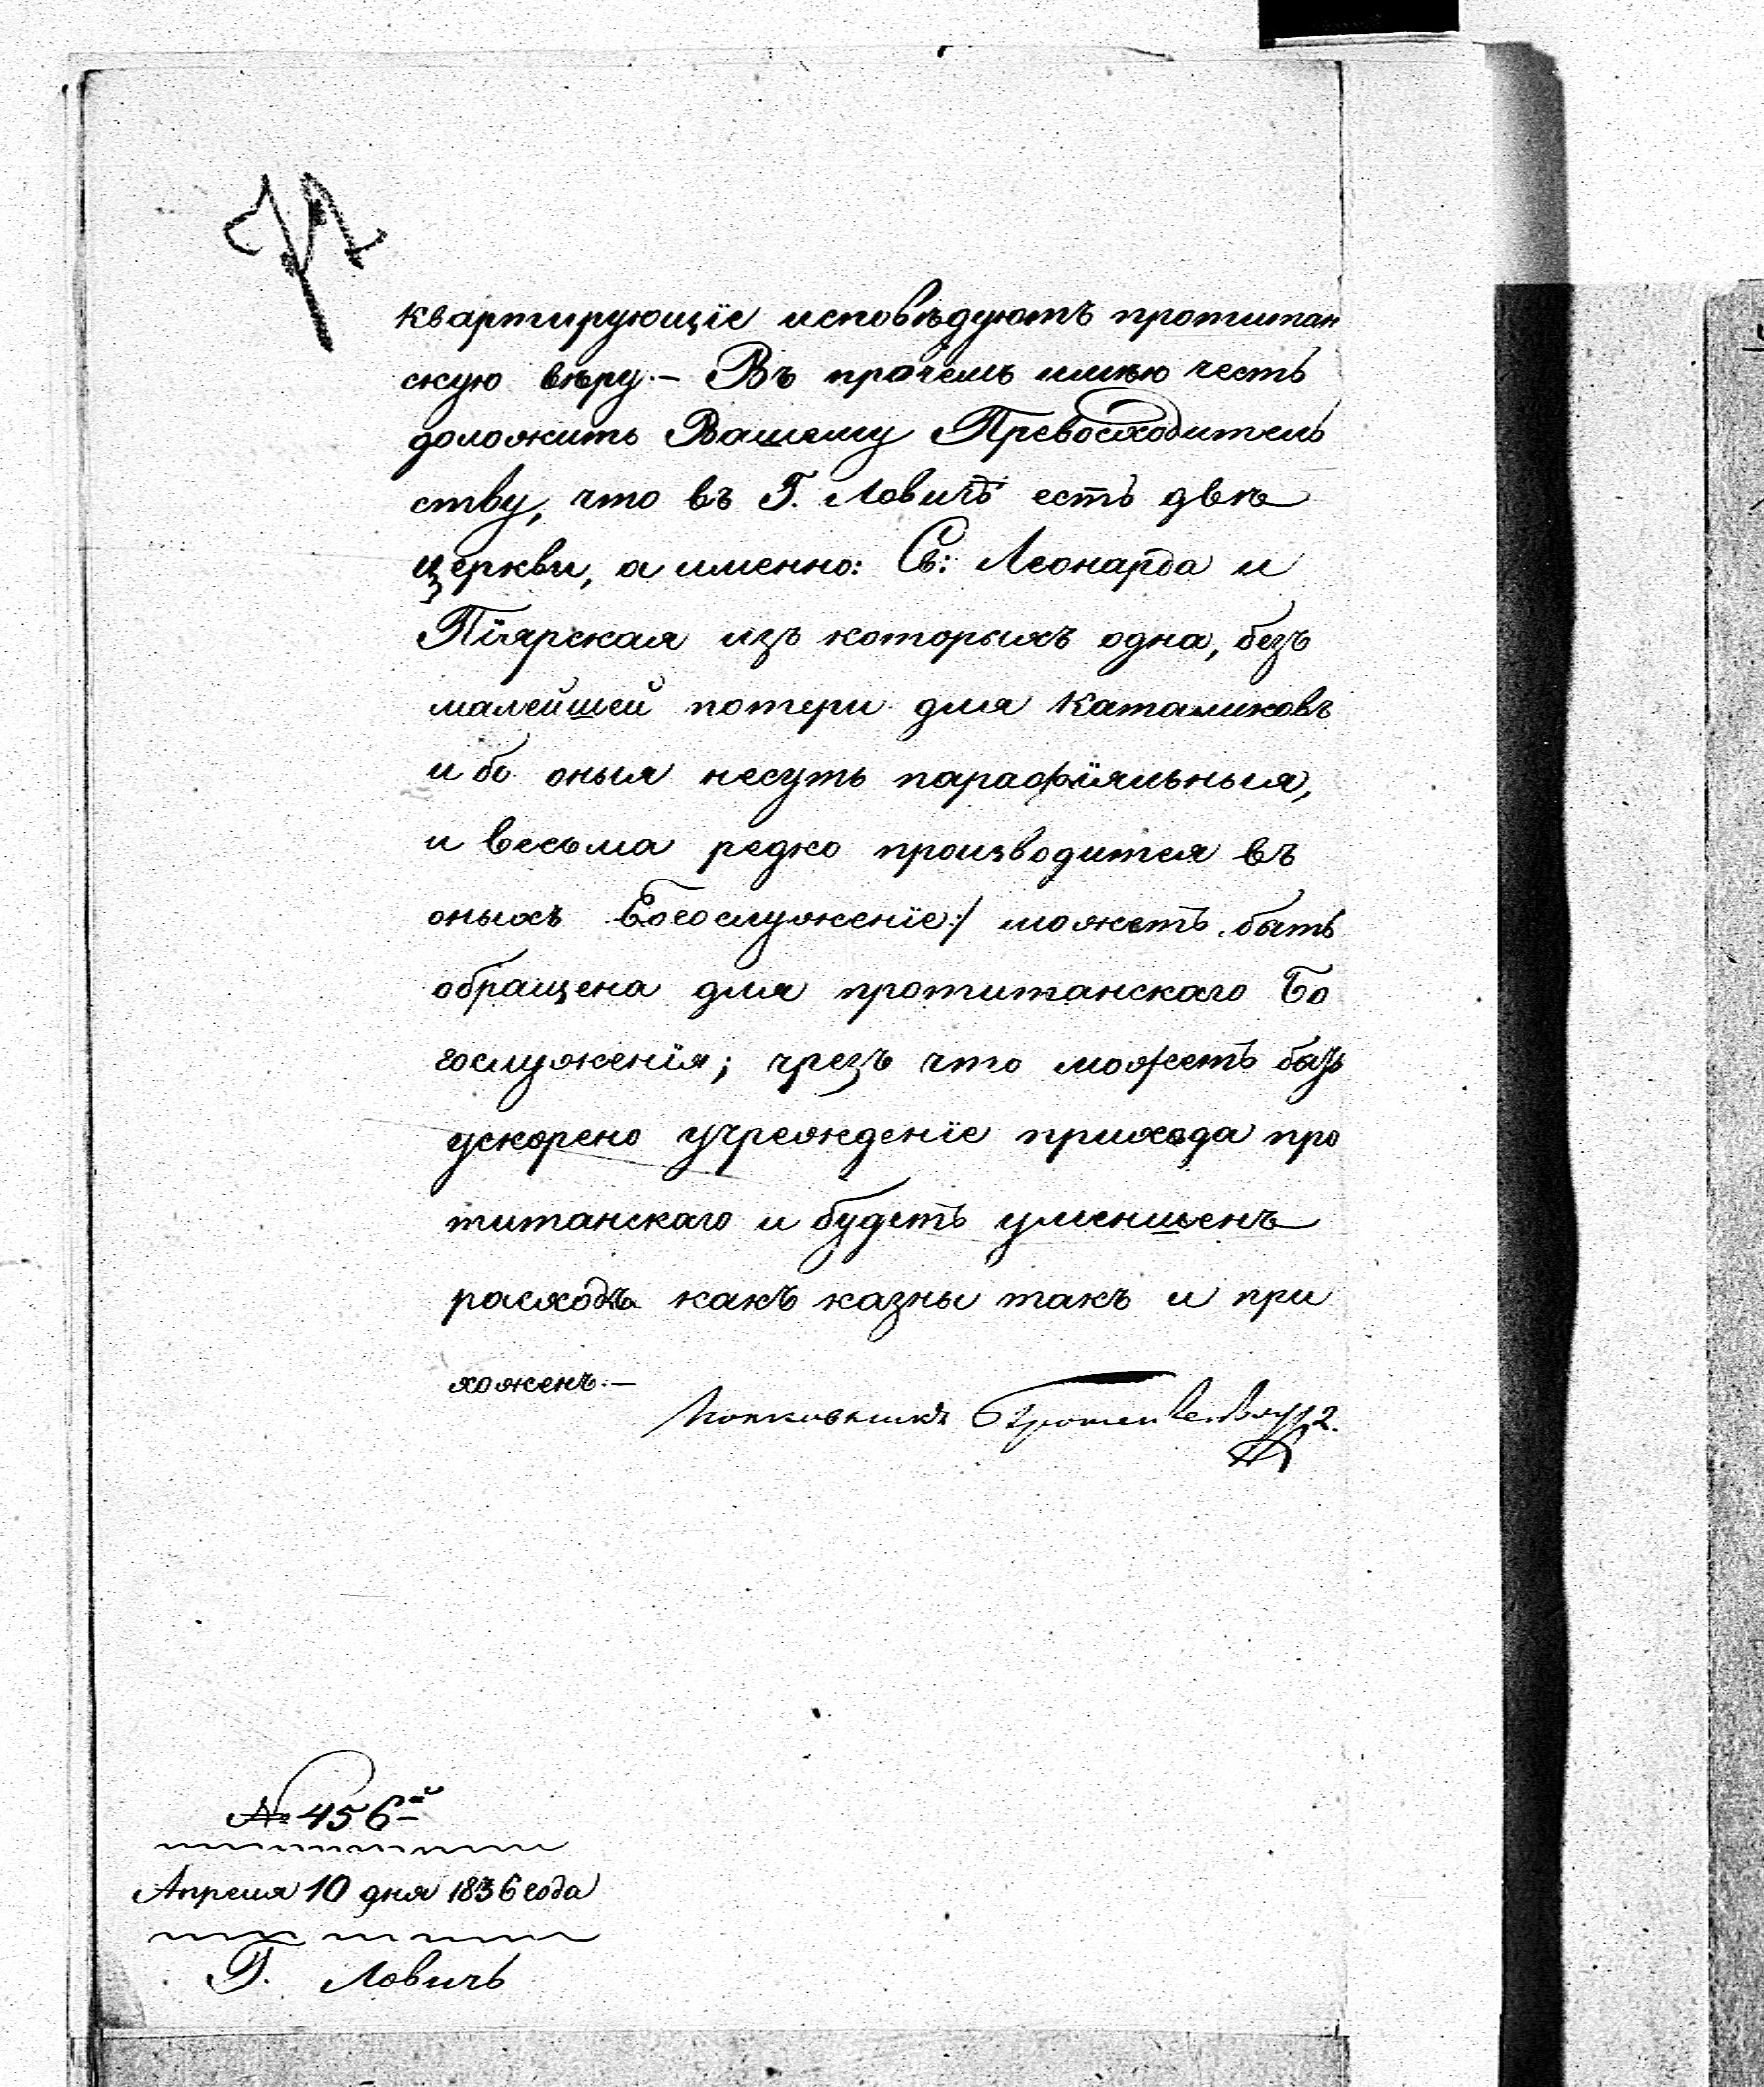 квартирующіе исповѣдуютъ протитан
скую вѣру.— Въ прочемъ имѣю честь
доложить Вашему Превосходитель
ству, что въ Г. Ловичѣ есть двѣ
церкви, а именно: Св: Леонарда и
Піярская изъ которыхъ одна, безъ
малейшей потери для Каталиковъ
ибо оныя несуть парафіяльныя,
и весьма редко производится въ
оныхъ Богослуженіе:/ можетъ быть
обращена для протитанскаго Бо
гослуженія; чрезъ что можетъ быть
ускорено учрежденіе прихода про
титанскаго и будетъ уменшенъ
расходъ какъ казны такъ и при
хоженъ.—
Полковникъ
№ 456й
Апреля 10 дня 1836 года
Г. Ловичь